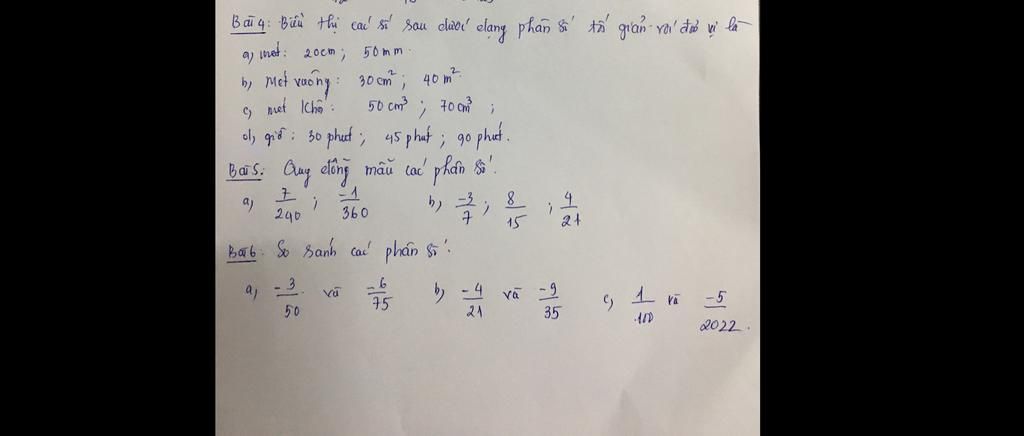 Bài 4: Biểu thị các số sau dưới dạng phân số tối giản với đơn vị là
a) mét: 20cm; 50mm.
b) Mét vuông: 30cm²; 40m².
c) mét khối: 50cm³; 70cm³;
d) giờ: 30 phút; 45 phút; 90 phút.
Bài 5: Quy đồng mẫu các phân số.
a) 7/240; -1/360 b) -3/7; 8/15; 4/21
Bài 6: So sánh các phân số.
a) -3/50 và -6/75 b) -4/21 và -9/35 c) 1/100 và -5/2022.